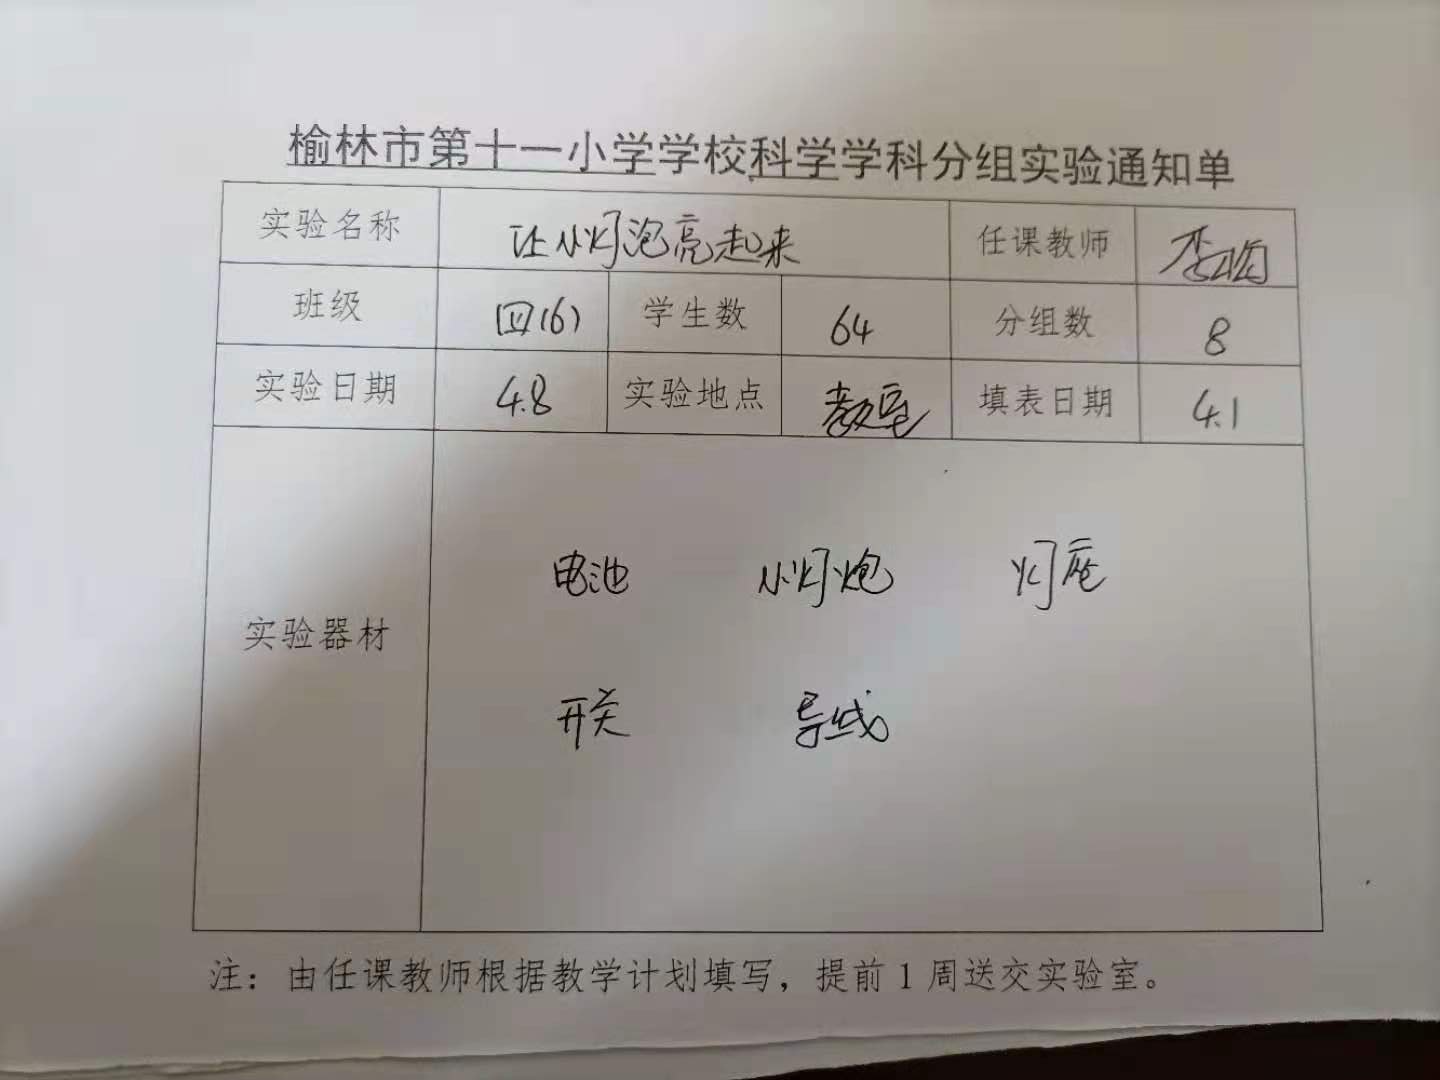 榆林市第十一小学学校科学学科分组实验通知单
实验名称 让小灯泡亮起来 任课教师
班级 四(6) 学生数 64 分组数 8
实验日期 4.8 实验地点 教室 填表日期 4.1
电池 小灯炮 灯座
实验器材
开关 导线
注：由任课教师根据教学计划填写，提前1周送交实验室。